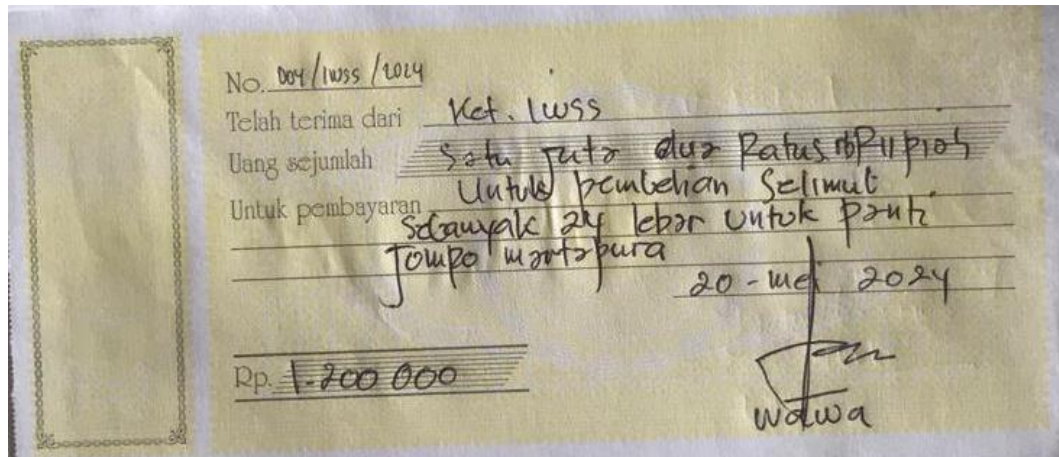 No. 004/IWSS/2024
Telah terima dari Ket. IWSS
Uang sejumlah Satu Juta dua Ratus rb Rupiah
Untuk pembayaran Untuk pembelian Selimut
Sebanyak 24 lebar Untuk panti
Jompo martapura
20 - mei 2024
Rp. 1.200 000
wawa